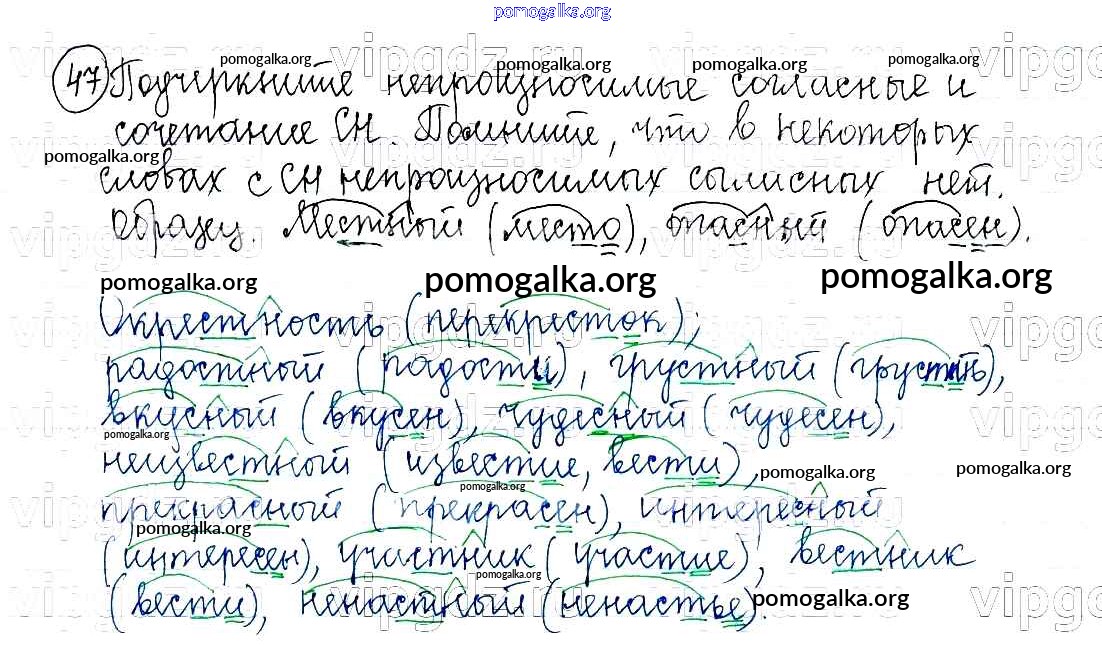 pomogalka.org
pomogalka.org pomogalka.org pomogalka.org pomogalka.org
47 Подчеркните непроизносимые согласные и
сочетание СН. Помните, что в некоторых
pomogalka.org
словах с СН непроизносимых сыласных нет.
Образец. Местный (место), опасный (опасен).
pomogalka.org pomogalka.org pomogalka.org
Окрестность (перекресток);
радостный (радости), грустный (грустить),
вкусный (вкусен), чудесный (чудесен),
pomogalka.org
неизвестный (известие, вести),
pomogalka.org pomogalka.org
pomogalka.org
прекрасный (прекрасен), интересный
pomogalka.org
(интересен), участник (участие), вестник
pomogalka.org
(вести), ненастный (ненастье).
pomogalka.org
vipgdz.ru vipgdz.ru vipgdz.ru